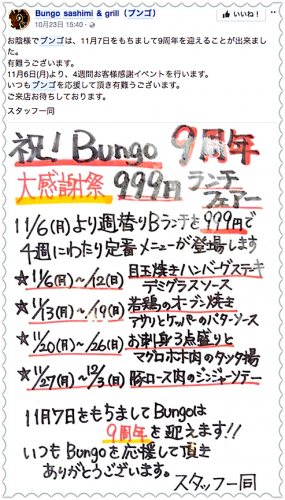 Bungo sashimi & grill（ブンゴ）
10月23日 15:40 ·
いいね！
お陰様でブンゴは、11月7日をもちまして9周年を迎えることが出来ました。
有難うございます。
11月6日(月)より、4週間お客様感謝イベントを行います。
いつもブンゴを応援して頂き有難うございます。
ご来店お待ちしております。
スタッフ一同
祝！Bungo 9周年
大感謝祭 999円 ランチフェアー
11/6(月)より週替りBランチを999円で
4週にわたり定番メニューが登場します
☆11/6(月)〜/12(日) 目玉焼きハンバーグステーキ
デミグラスソース
☆11/13(月)〜/19(日) 若鶏のオーブン焼き
アサリとケッパーのバターソース
☆11/20(月)〜/26(日) お刺身3点盛りと
マグロホホ肉のタツタ揚
☆11/27(月)〜12/3(日) 豚ロース肉のジンジャーソテー
11月7日をもちましてBungoは
9周年を迎えます!!
いつもBungoを応援して頂き
ありがとうございます。
スタッフ一同